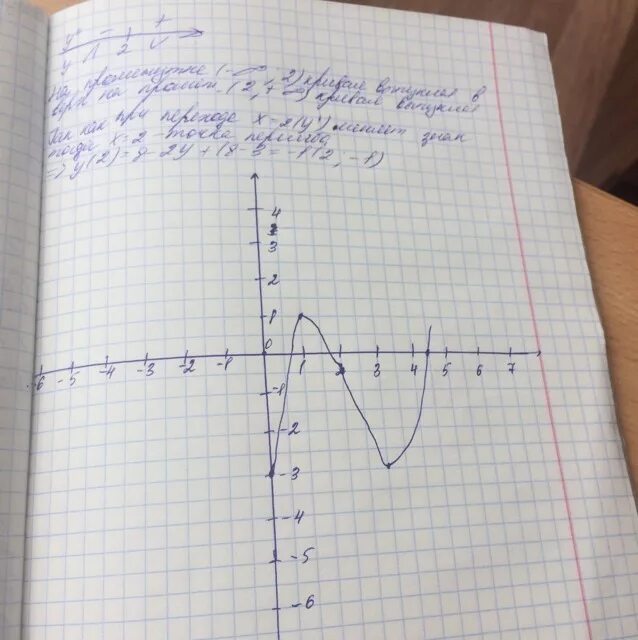 y" − +
y 2
На промежутке (-∞, 2) кривая выпукла в
на промеж. (2, +∞) кривая выпукла
Так как при переходе x=2 (y") меняет знак
тогда x=2 точка перегиба
=> y(2) = 8 - 24 + 18 - 3 = -1 (2, -1)
4
3
2
1
0
-6 -5 -4 -3 -2 -1 1 2 3 4 5 6 7
-1
-2
-3
-4
-5
-6